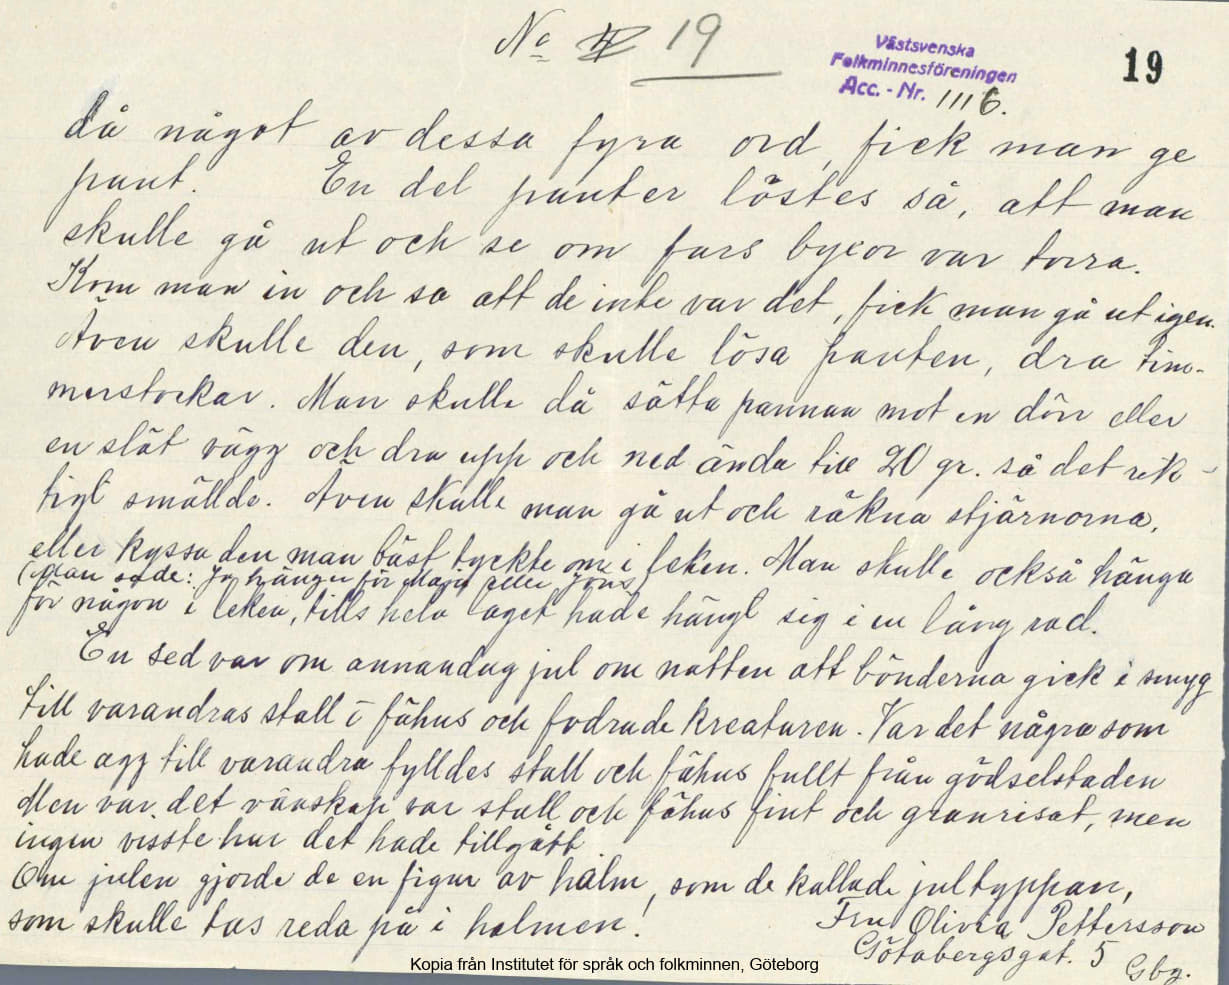 No 19
Västsvenska
Folkminnesföreningen
Acc. - Nr. 1116.
19
då något av dessa fyra ord, fick man ge
pant. En del panter löstes så, att man
skulle gå ut och se om fars byxor var torra.
Kom man in och sa att de inte var det, fick man gå ut igen.
Även skulle den, som skulle lösa panten, dra tim-
merstockar. Man skulle då sätta pannan mot en dörr eller
en slät vägg och dra upp och ned ända till 20 gr. så det rik-
tigt smällde. Även skulle man gå ut och räkna stjärnorna,
eller kyssa den man bäst tyckte om i leken. Man skulle också hänga
(Man sade: Jag hänger för Maja eller Jöns)
för någon i leken, tills hela laget hade hängt sig i en lång rad.
En sed var om annandag jul om natten att bönderna gick i smyg
till varandras stall i fähus och fodrade kreaturen. Var det några som
hade agg till varandra fylldes stall och fähus fullt från gödselstaden
Men var det vänskap var stall och fähus fint och granrisat, men
ingen visste hur det hade tillgått
Om julen gjorde de en figur av halm, som de kallade jultyppan,
som skulle tas reda på i halmen!
Fru Olivia Pettersson
Götabergsgat. 5 Gbg.
Kopia från Institutet för språk och folkminnen, Göteborg